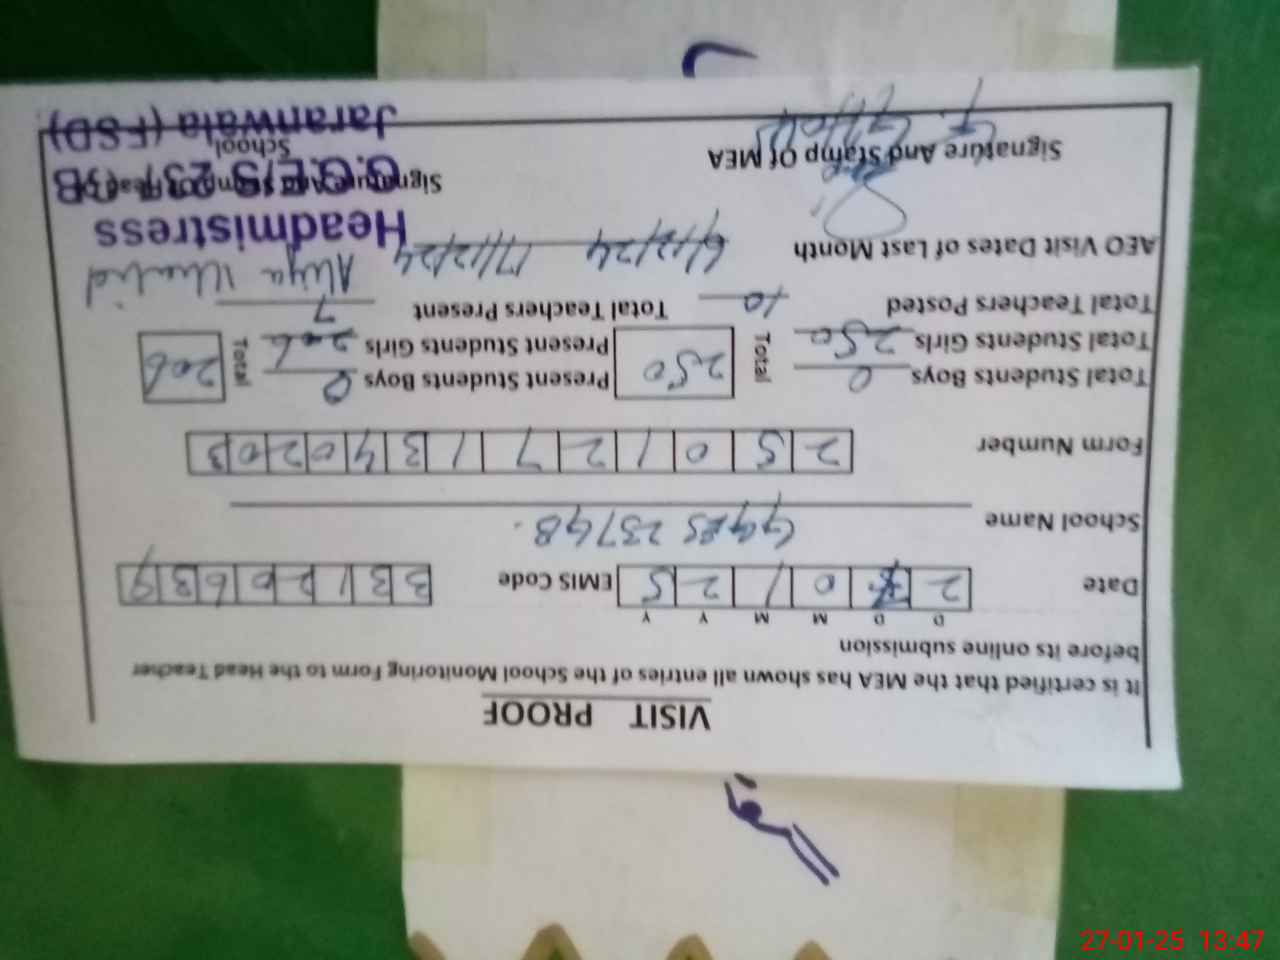 VISIT PROOF
It is certified that the MEA has shown all entries of the School Monitoring Form to the Head Teacher
before its online submission
D D M M Y Y
Date 2 7 0 1 2 5 EMIS Code 3 3 1 2 0 6 3 9
School Name GGES 237GB.
Form Number 2 5 0 1 2 7 1 3 4 0 2 0 3
Total Students Boys 0 Total 250 Present Students Boys 0 Total 206
Total Students Girls 250 Present Students Girls 206
Total Teachers Posted 10 Total Teachers Present 7
AEO Visit Dates of Last Month 6/12/24 17/12/24
Headmistress
Signature And Stamp Of MEA
School
Jaranwala (FSD)
27-01-25 13:47